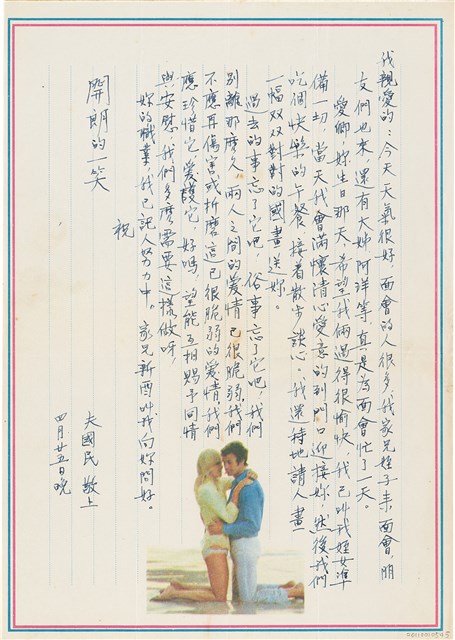 我親愛的：今天天氣很好，面會的人很多，我家兄姪子来面會，朋
友們也来，還有大姊阿洋等，真是為面會忙了一天。
愛卿，妳生日那天，希望我倆過得很愉快，我已叫我姪女準
備一切，當天我會滿懷清心愛意的到門口迎接妳，然後我們
吃個快樂的午餐，接着散步談心。我還特地請人畫
一幅双双對對的國畫送妳。
過去的事忘了它吧，俗事忘了它吧，我們
別離那麼久，兩人之間的愛情已很脆弱，我們
不應再傷害或折磨這已很脆弱的愛情，我們
應珍惜它，愛護它，好嗎，望能互相賜予回情
與安慰，我們多麼需要這樣做呀，
妳的職業，我已託人努力中。家兄新酉叫我向妳問好。
祝
開朗的一笑
夫國民 敬上
四月廿五日晚